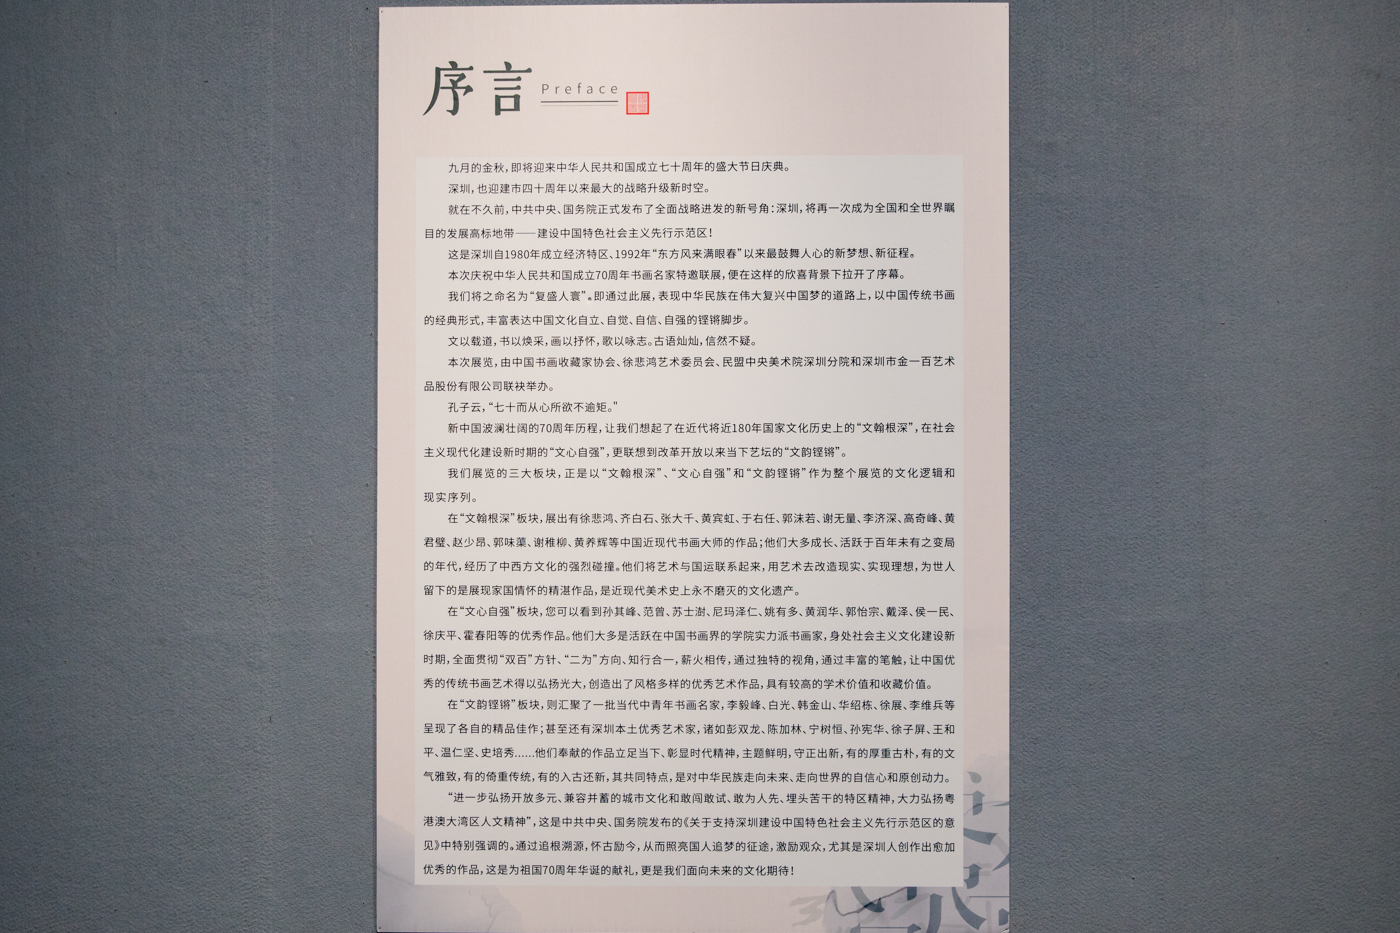 序言
Preface
九月的金秋，即将迎来中华人民共和国成立七十周年的盛大节日庆典。
深圳，也迎建市四十周年以来最大的战略升级新时空。
就在不久前，中共中央、国务院正式发布了全面战略进发的新号角：深圳，将再一次成为全国和全世界瞩
目的发展高标地带——建设中国特色社会主义先行示范区！
这是深圳自1980年成立经济特区、1992年“东方风来满眼春”以来最鼓舞人心的新梦想、新征程。
本次庆祝中华人民共和国成立70周年书画名家特邀联展，便在这样的欣喜背景下拉开了序幕。
我们将之命名为“复盛人寰”。即通过此展，表现中华民族在伟大复兴中国梦的道路上，以中国传统书画
的经典形式，丰富表达中国文化自立、自觉、自信、自强的铿锵脚步。
文以载道，书以焕采，画以抒怀，歌以咏志。古语灿灿，信然不疑。
本次展览，由中国书画收藏家协会、徐悲鸿艺术委员会、民盟中央美术院深圳分院和深圳市金一百艺术
品股份有限公司联袂举办。
孔子云，“七十而从心所欲不逾矩。”
新中国波澜壮阔的70周年历程，让我们想起了在近代将近180年国家文化历史上的“文翰根深”，在社会
主义现代化建设新时期的“文心自强”，更联想到改革开放以来当下艺坛的“文韵铿锵”。
我们展览的三大板块，正是以“文翰根深”、“文心自强”和“文韵铿锵”作为整个展览的文化逻辑和
现实序列。
在“文翰根深”板块，展出有徐悲鸿、齐白石、张大千、黄宾虹、于右任、郭沫若、谢无量、李济深、高奇峰、黄
君璧、赵少昂、郭味蕖、谢稚柳、黄养辉等中国近现代书画大师的作品；他们大多成长、活跃于百年未有之变局
的年代，经历了中西方文化的强烈碰撞。他们将艺术与国运联系起来，用艺术去改造现实、实现理想，为世人
留下的是展现家国情怀的精湛作品，是近现代美术史上永不磨灭的文化遗产。
在“文心自强”板块，您可以看到孙其峰、范曾、苏士澍、尼玛泽仁、姚有多、黄润华、郭怡宗、戴泽、侯一民、
徐庆平、霍春阳等的优秀作品。他们大多是活跃在中国书画界的学院实力派书画家，身处社会主义文化建设新
时期，全面贯彻“双百”方针、“二为”方向、知行合一，薪火相传，通过独特的视角，通过丰富的笔触，让中国优
秀的传统书画艺术得以弘扬光大，创造出了风格多样的优秀艺术作品，具有较高的学术价值和收藏价值。
在“文韵铿锵”板块，则汇聚了一批当代中青年书画名家，李毅峰、白光、韩金山、华绍栋、徐展、李维兵等
呈现了各自的精品佳作；甚至还有深圳本土优秀艺术家，诸如彭双龙、陈加林、宁树恒、孙宪华、徐子屏、王和
平、温仁坚、史培秀……他们奉献的作品立足当下、彰显时代精神，主题鲜明，守正出新，有的厚重古朴，有的文
气雅致，有的倚重传统，有的入古还新，其共同特点，是对中华民族走向未来、走向世界的自信心和原创动力。
“进一步弘扬开放多元、兼容并蓄的城市文化和敢闯敢试、敢为人先、埋头苦干的特区精神，大力弘扬粤
港澳大湾区人文精神”，这是中共中央、国务院发布的《关于支持深圳建设中国特色社会主义先行示范区的意
见》中特别强调的。通过追根溯源，怀古励今，从而照亮国人追梦的征途，激励观众，尤其是深圳人创作出愈加
优秀的作品，这是为祖国70周年华诞的献礼，更是我们面向未来的文化期待！